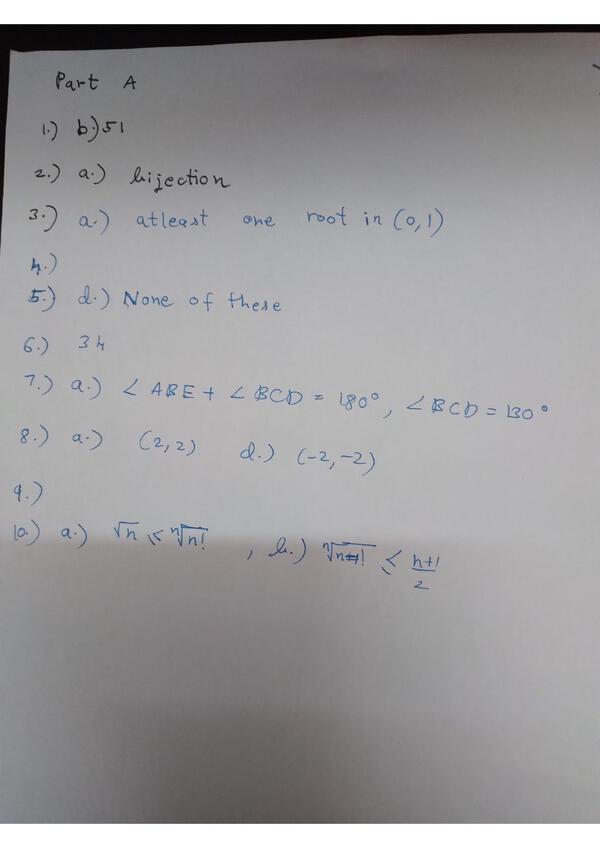 Part A
1.) b.) 51
2.) a.) bijection
3.) a.) atleast one root in (0,1)
4.)
5.) d.) None of these
6.) 34
7.) a.) ∠ABE + ∠BCD = 180°, ∠BCD = 130°
8.) a.) (2,2) d.) (-2,-2)
9.)
10.) a.) √n ≤ ⁿ√n! , b.) ⁿ√n! ≤ (n+1)/2